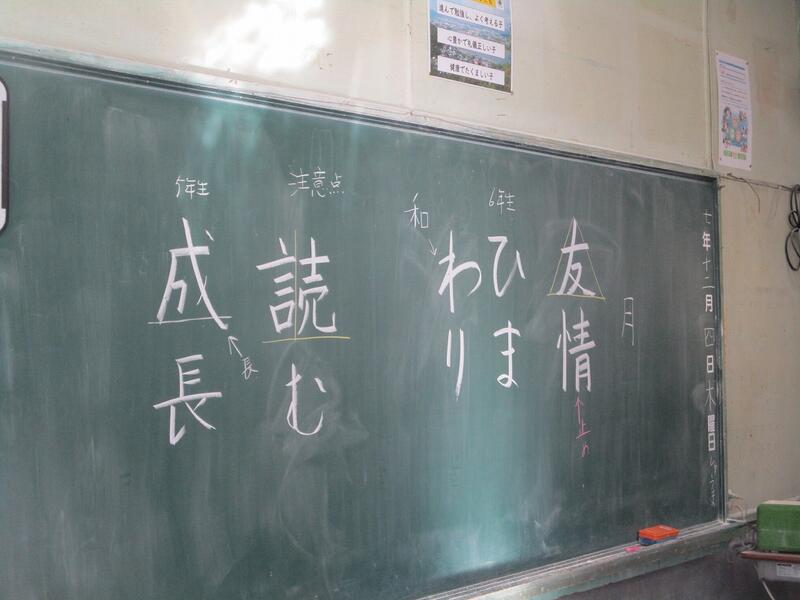 進んで勉強し、よく考える子
心豊かで礼儀正しい子
健康でたくましい子
七年十二月四日木曜日
月
友情
止め
6年生
ひま
わり
和
注意点
読む
5年生
成長
長